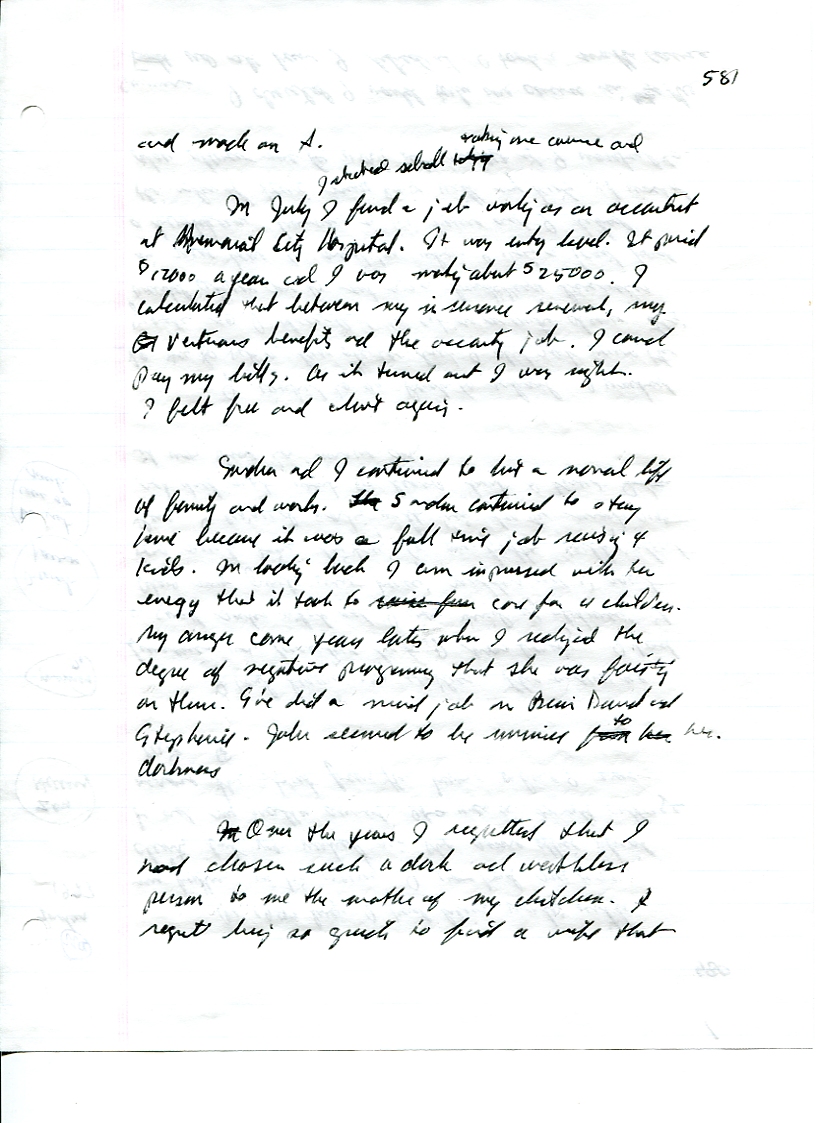 581
and made an A.
I started school taking one course and
In July I found a job working as an accountant
at Memorial City Hospital. It was entry level. It paid
$12000 a year and I was making about $25000. I
calculated that between my insurance renewal, my
veterans benefits and the accounting job. I could
pay my bills. As it turned out I was right.
I felt free and alive again.
Sandra and I continued to live a normal life
of family and work. Sandra continued to stay
home because it was a full time job raising 4
kids. In looking back I am impressed with her
energy that it took to care for 4 children.
My anger came years later when I realized the
degree of negative programing that she was
on them. She did a job on David and
Stephanie. John seemed to be immune to her
darkness
Over the years I regretted that I
had chosen such a dark and worthless
person to me the mother of my children. I
regret being so quick to find a wife that